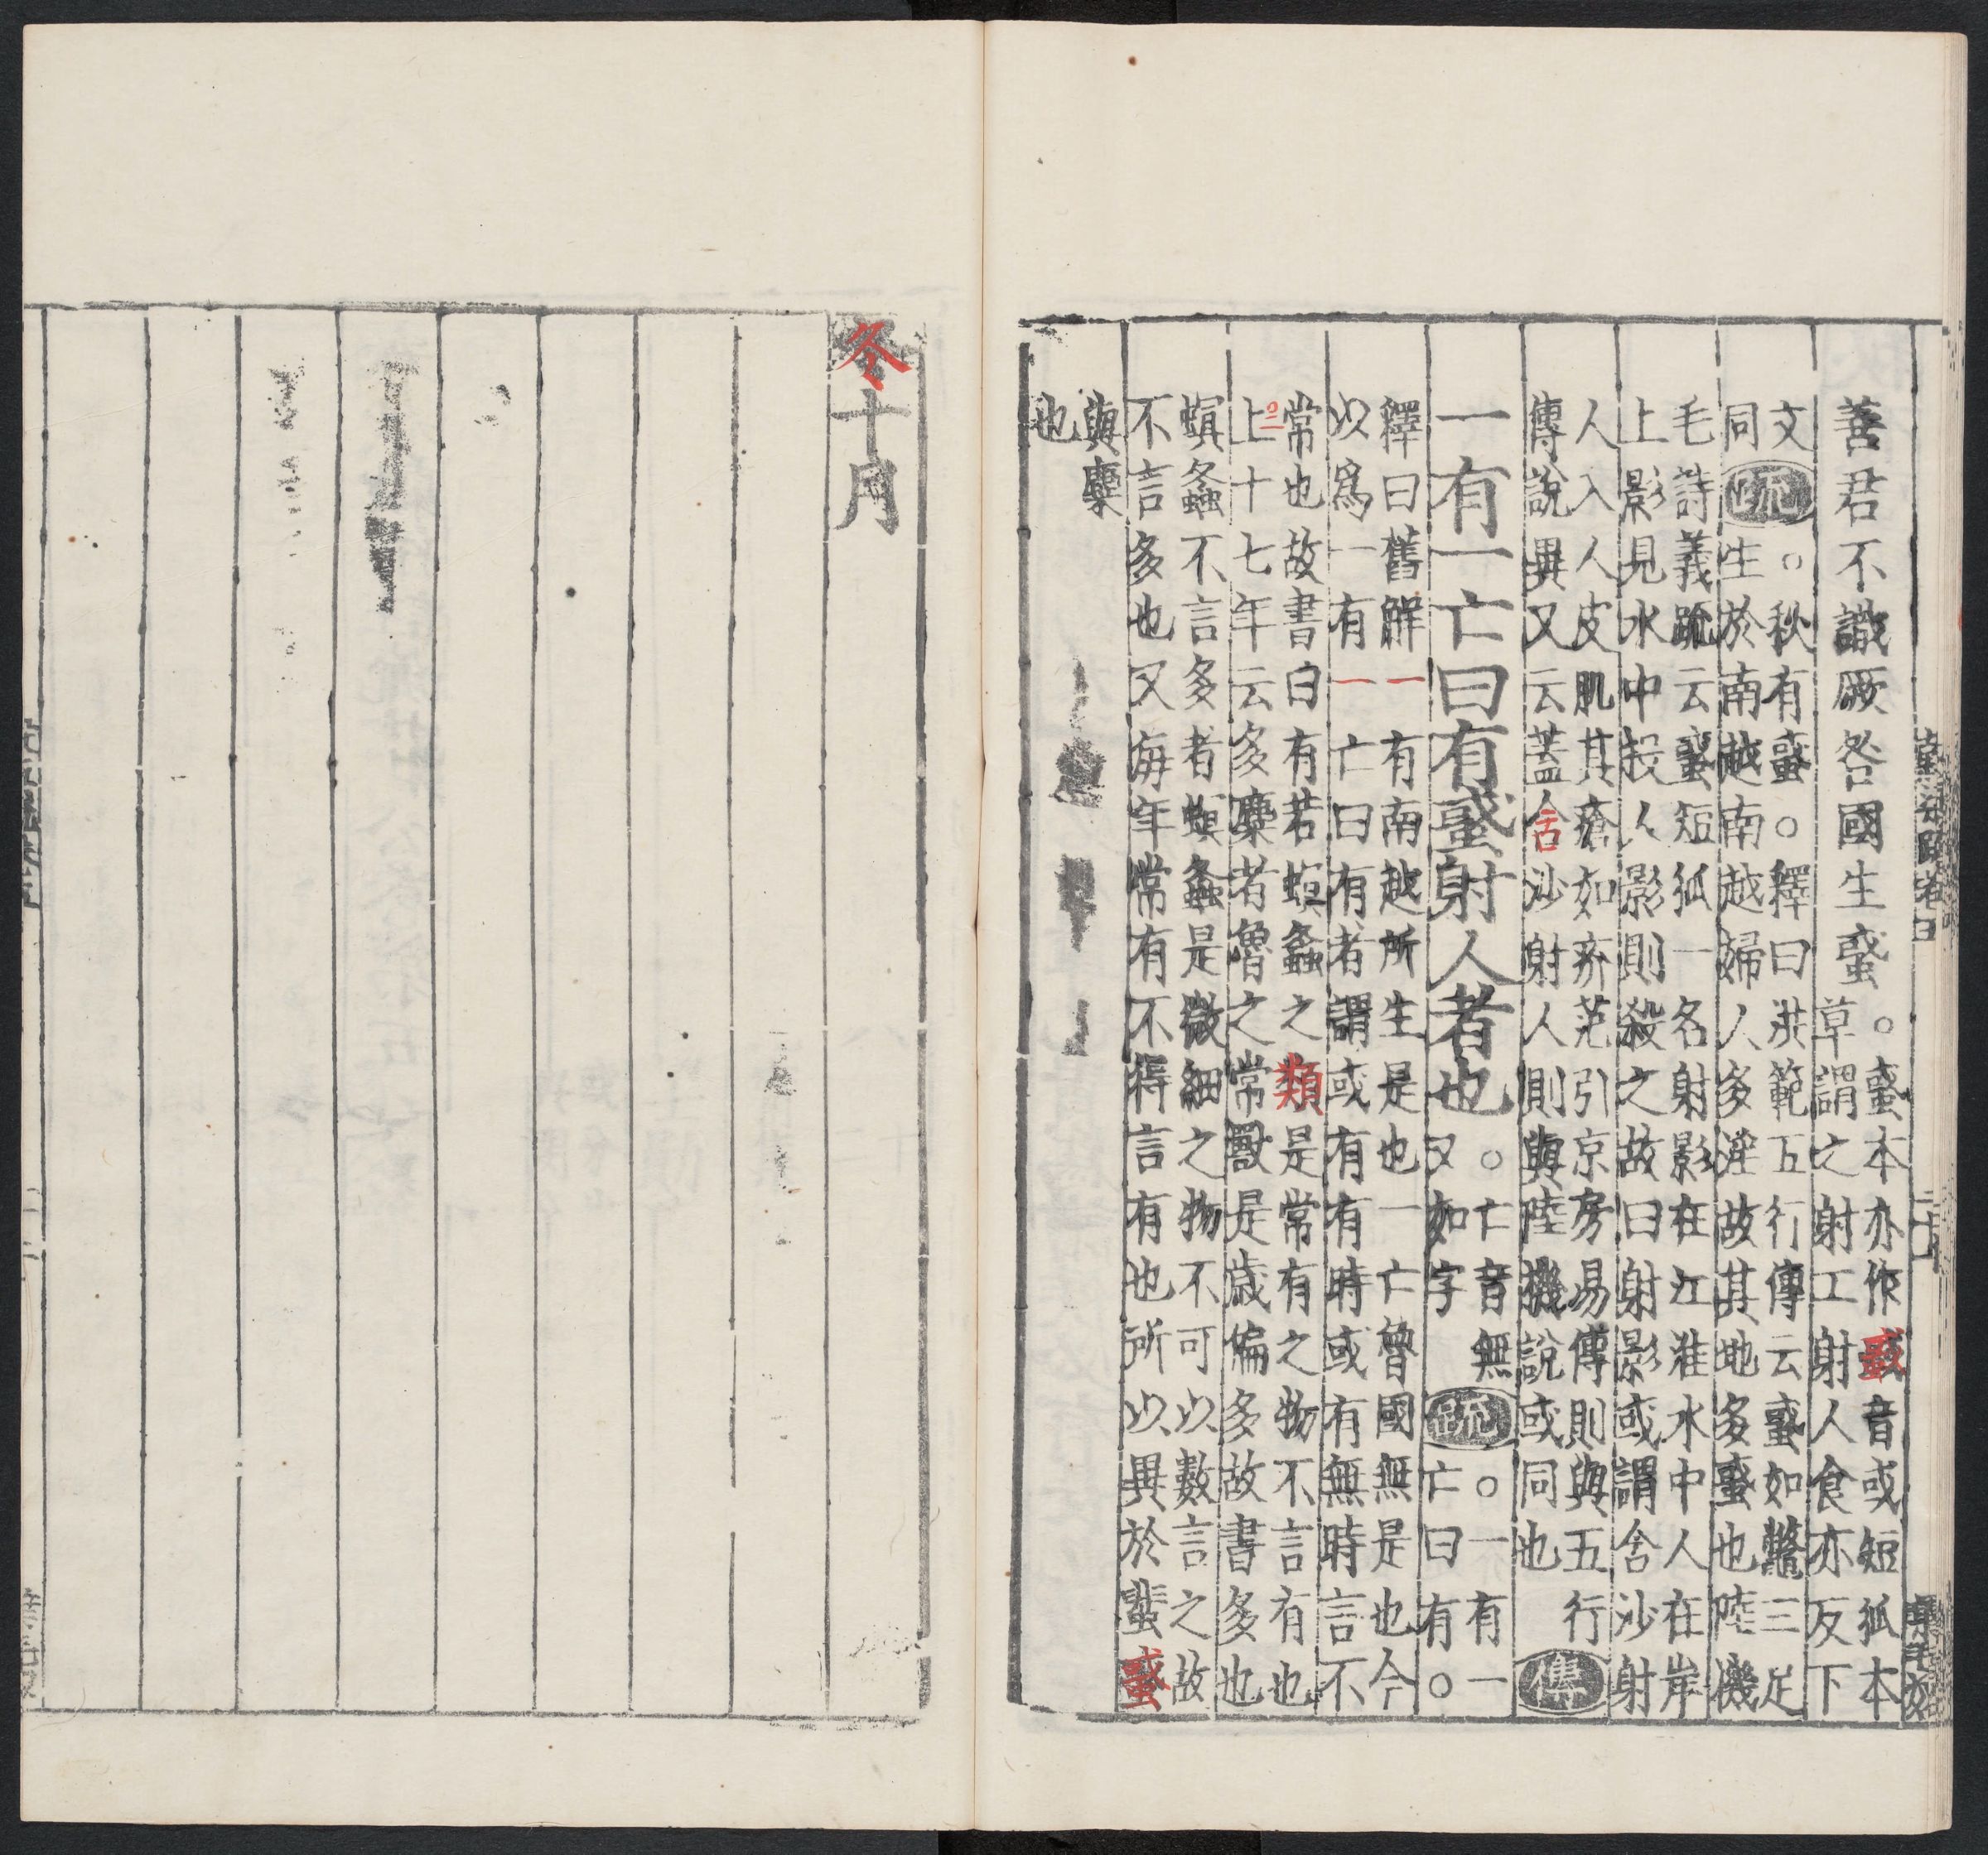 善君不識厥咎國生蜮。蜮本亦作蜮音或短狐本
草謂之射工射人食亦反下
文
同疏。秋有蜮。釋曰洪範五行傳云蜮如鼈三足
生於南越南越婦人多淫故其地多蜮也陸機
毛詩義疏云蜮短狐一名射影在江淮水中人在岸
上影見水中投人影則殺之故曰射影或謂含沙射
人入人皮肌其瘡如疥范引京房易傳則與五行
傳說異又云蓋含沙射人則與陸機說或同也 傳
一有一亡曰有蜮射人者也。亡音無
又如字疏。一有一
亡曰有。
釋曰舊解一有南越所生是也一亡魯國無是也今
以爲一有一亡曰有者謂或有有時或有無時言不
常也故書曰有若螟螽之類是常有之物不言有也
上十七年云多麋者魯之常獸是歲偏多故書多也
螟螽不言多者螟螽是微細之物不可以數言之故
不言多也又每年常有不得言有也所以異於蜚蜮
與麋
也
冬十月